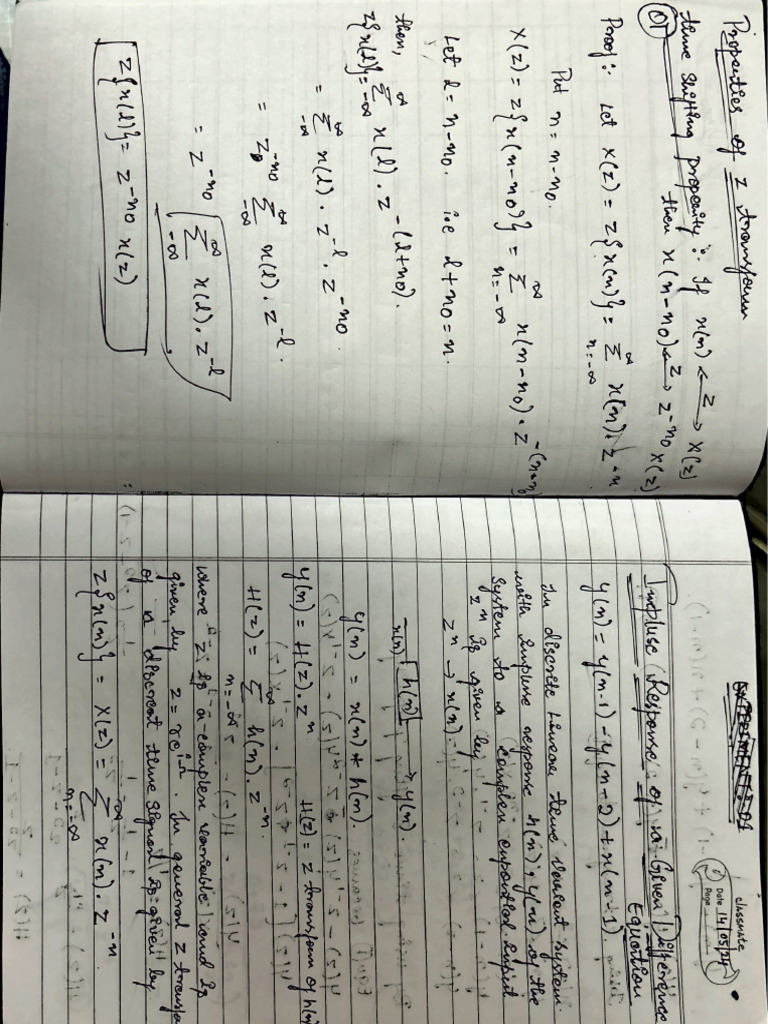 Properties of Z transform
① time shifting property :- If x(n) ⟷z X(z)
then x(n-n0) ⟷z z^-n0 X(z)
Proof :- Let X(z) = Z{x(n)} = ∞Σn=-∞ x(n). z^-n
Put n = n-n0.
X(z) = Z{x(n-n0)} = ∞Σn=-∞ x(n-n0). z^-(n-n0)
Let l = n-n0. i.e l+n0 = n.
then,
Z{x(l)} = ∞Σ-∞ x(l). z^-(l+n0).
= ∞Σ-∞ x(l). z^-l. z^-n0.
= z^-n0 ∞Σ-∞ x(l). z^-l.
= z^-n0 ∞Σ-∞ x(l). z^-l
Z{x(l)} = z^-n0 x(z)
classmate
Date 14/05/24
Page
Impluse Response of a Given Difference
Equation
y(n) = y(n-1) - y(n-2) + x(n-1).
In discrete linear time system
with impluse response h(n), y(n) of the
system to a complex input
z^n is given by
z^n → x(n)
x(n) → h(n) → y(n).
y(n) = x(n) * h(n).
y(n) = H(z). z^n H(z) = z transform of h(n)
H(z) = ∞Σn=-∞ h(n). z^-n.
where 'z' is a complex variable and is
given by z = re^jω. In general z
of a time signal is given by
Z{x(n)} = X(z) = ∞Σn=-∞ x(n). z^-n